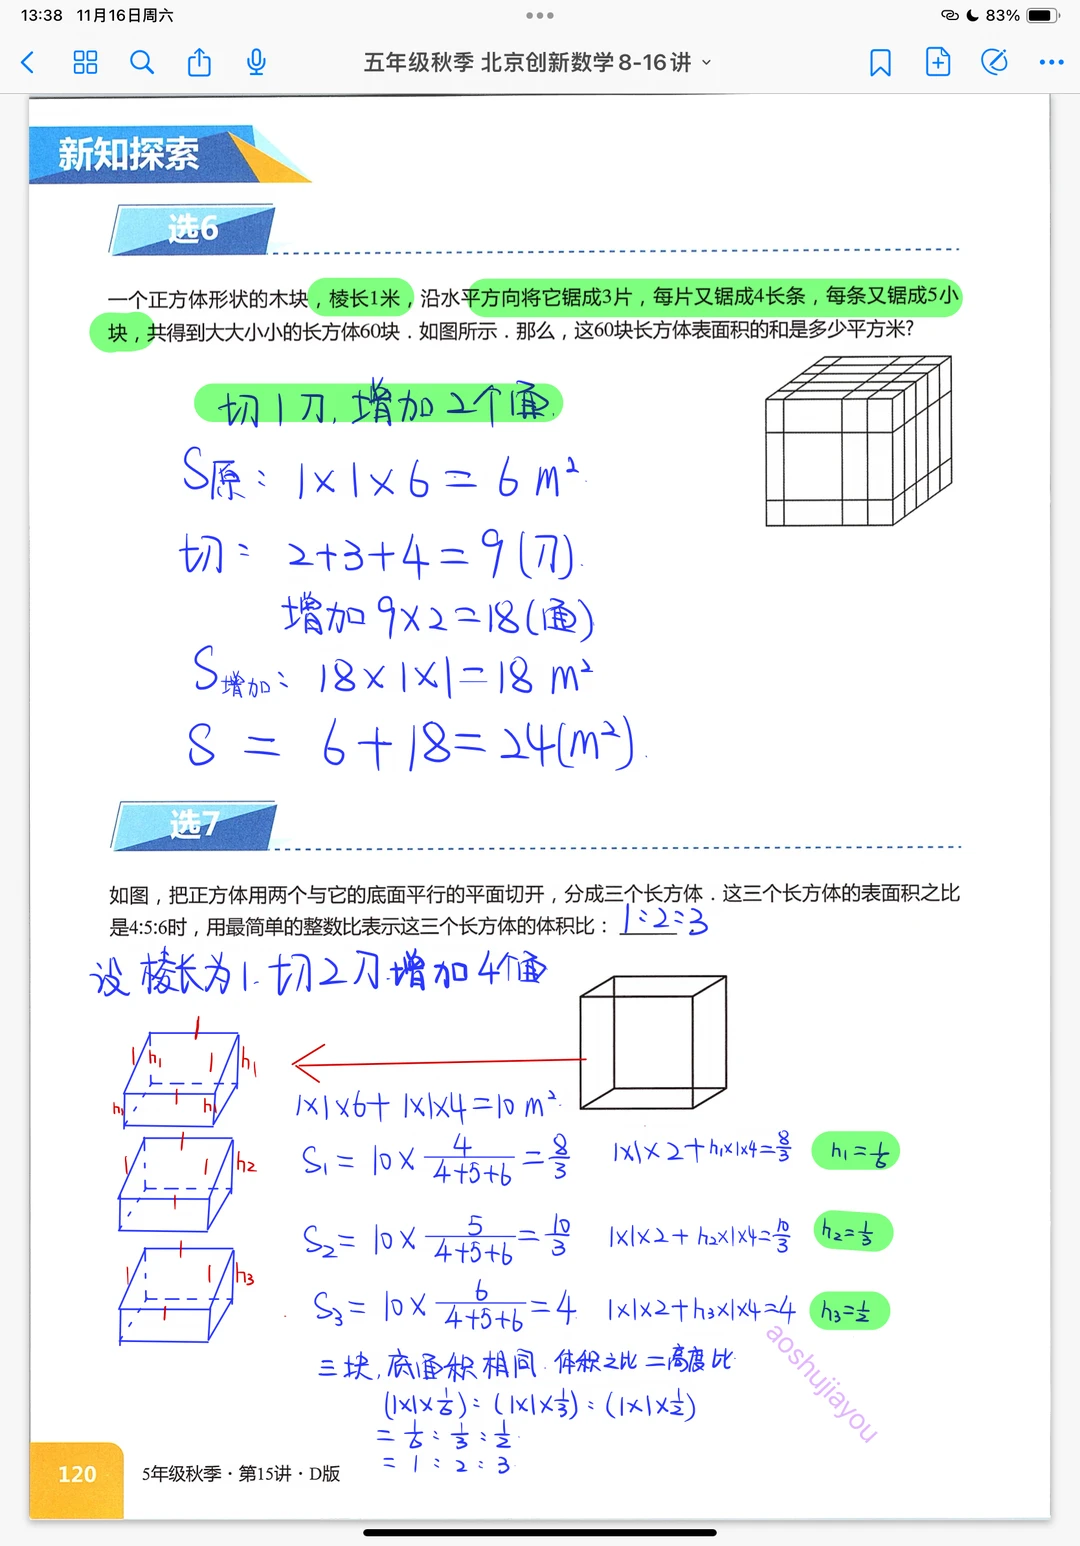 13:38 11月16日周六
83%
五年级秋季 北京创新数学8-16讲
新知探索
选6
一个正方体形状的木块，棱长1米，沿水平方向将它锯成3片，每片又锯成4长条，每条又锯成5小
块，共得到大大小小的长方体60块．如图所示．那么，这60块长方体表面积的和是多少平方米?
切1刀, 增加2个面.
S原: 1×1×6=6m²
切: 2+3+4=9(刀).
增加9×2=18(面)
S增加: 18×1×1=18m²
S = 6+18=24(m²).
选7
如图，把正方体用两个与它的底面平行的平面切开，分成三个长方体．这三个长方体的表面积之比
是4:5:6时，用最简单的整数比表示这三个长方体的体积比： 1:2:3
设棱长为1. 切2刀.增加4个面
1
1 h₁ 1 h₁
h₁ 1 h₁
1×1×6+1×1×4=10m².
S₁=10×4/(4+5+6)=8/3 1×1×2+h₁×1×4=8/3 h₁=1/6
1
1 1 h₂
1
S₂=10×5/(4+5+6)=10/3 1×1×2+h₂×1×4=10/3 h₂=1/3
1
1 1 h₃
1
S₃=10×6/(4+5+6)=4 1×1×2+h₃×1×4=4 h₃=1/2
三块,底面积相同.体积之比=高度比
(1×1×1/6):(1×1×1/3):(1×1×1/2)
=1/6:1/3:1/2.
=1:2:3
aoshujiayou
120 5年级秋季·第15讲·D版